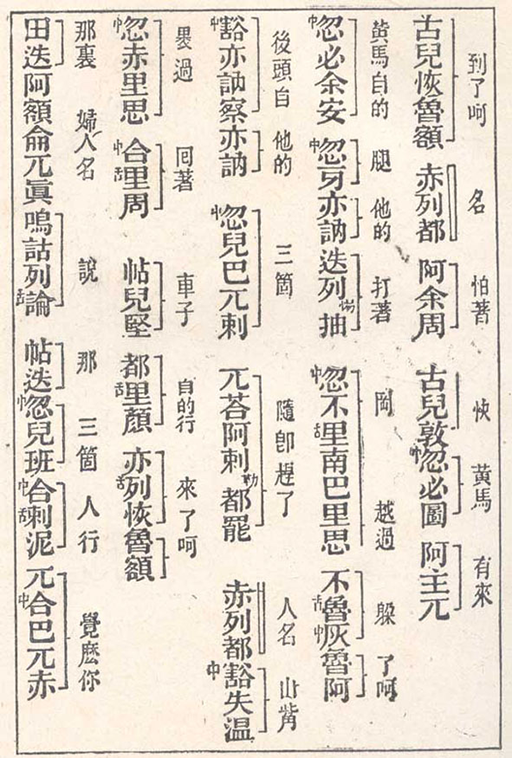 到了呵 名 怕著 快 黃馬 有來
古兒恢魯額 赤列都 阿余周 古兒敦中忽必圖 阿主兀
黃馬自的 腿 他的 打著 岡 越過 躱 了呵
中忽必余安 中忽牙亦訥 迭列惕抽 中忽不舌里南巴里思 不舌魯中灰魯阿
後頭自 他的 三箇 隨卽趕了 人名 山觜
中豁亦訥察亦訥 中忽兒巴兀剌 兀荅阿剌勒都罷 赤列都中豁失溫
過 回著 車子 自的行 來了呵
中忽赤里思 中合舌里周 帖兒堅 都舌里顏 亦舌列恢魯額
那裏 婦人名 說 那 三箇 人行 覺麽你
田迭阿額侖兀眞嗚詁列舌論 帖迭中忽兒班中合舌剌泥 兀中合巴兀赤